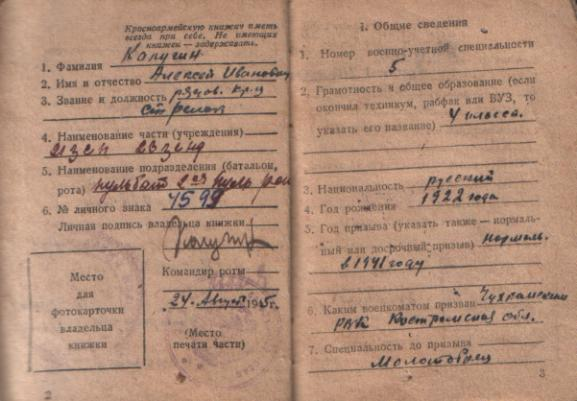 Красноармейскую книжку иметь
всегда при себе. Не имеющих
книжек — задерживать.
1. Фамилия Калугин
2. Имя и отчество Алексей Иванович
3. Звание и должность рядов. кр-ц
стрелок
4. Наименование части (учреждения)
5. Наименование подразделения (батальон,
рота) пульбат
6. № личного знака 4599
Личная подпись владельца книжки
Калугин
Командир роты
24. Август 1945г.
(Место
печати части)
Место
для
фотокарточки
владельца
книжки
2
I. Общие сведения
1. Номер военно-учетной специальности
5
2. Грамотность и общее образование (если
окончил техникум, рабфак или ВУЗ, то
указать его название) 4 класса.
3. Национальность русский
4. Год рождения 1922 года
5. Год призыва (указать также — нормаль-
ный или досрочный призыв) нормаль.
в 1941 году
6. Каким военкоматом призван
РВК Костромская обл.
7. Специальность до призыва
Молотобоец
3